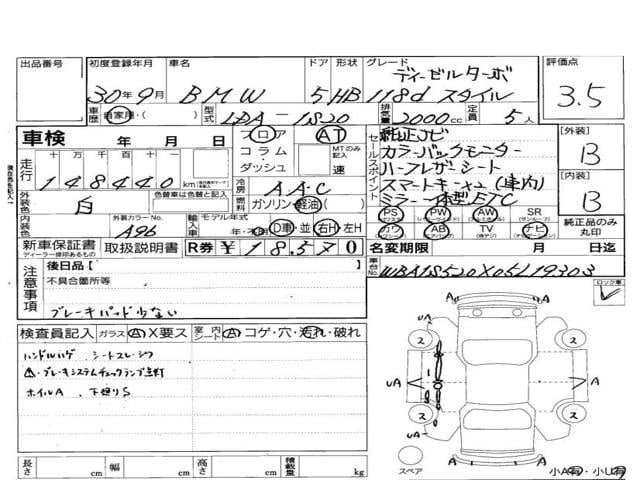 出品番号 初度登録年月 車名 ドア 形状 グレード 評価点
ディーゼルターボ
30年9月 BMW 5 HB 118d スタイル 3.5
車歴 自家用・( ) 型式 LDA-1S20 排気量 2000cc 定員 5人
車検 年 月 日 フロア AT
コラム・ダッシュ MTのみ記入 速
走行 十万千百十 148440km
冷房 AAC
外装色 白 色替車は色替と記入 ガソリン・軽油・( )
内装色 外装カラーNo. A96 輸入車 モデル年式 年・不明 D車・並 右H・左H
セールスポイント 純正ナビ
カラーバックモニター
ハーフレザーシート
スマートキー×2(車内)
ミラー一体型ETC
PS PW AW SR
カワ AB TV ナビ 純正品のみ丸印
【外装】 B
【内装】 B
新車保証書 取扱説明書 R券 ¥18,570 名変期限 月 日迄
ディーラー捺印あるもの
注意事項 後日品【 】 車台No. WBA1S520X05L19303
不具合箇所等
ブレーキパッド少ない
ロック車
検査員記入 ガラス A X要ス 室内シート A コゲ・穴・汚れ・破れ
ハンドルハゲ シートスレ・シワ
ブレーキシステムチェックランプ点灯
ホイルA 下廻りS
UA 2 2
UA A A
UA 2 2
スペア A A
長さ cm 幅 cm 高さ cm 積載量 kg
小A有・小U有